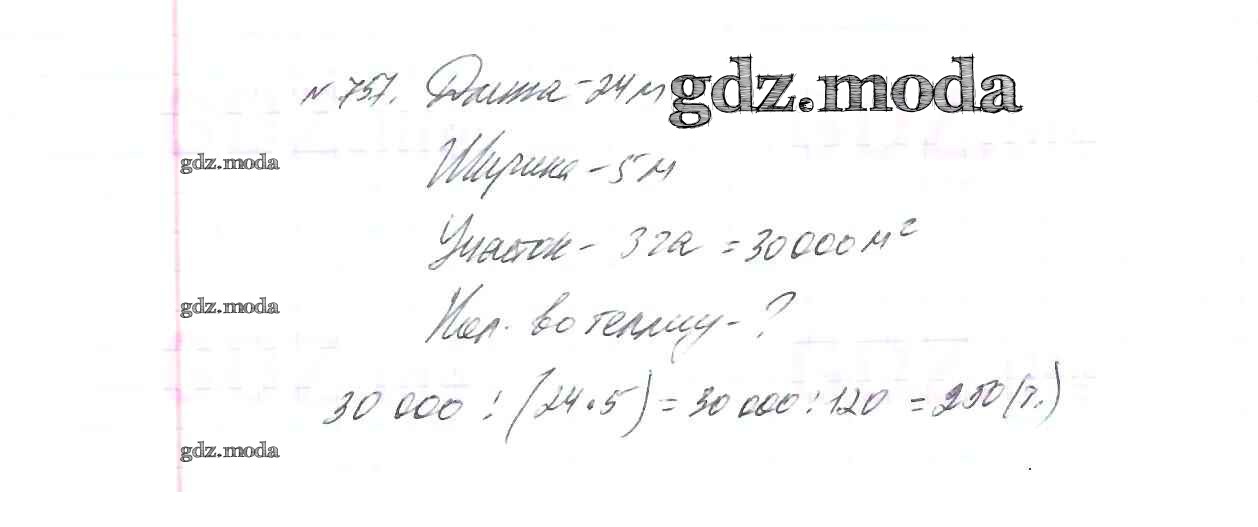 № 757. Длина - 24 м
gdz.moda
Ширина - 5 м
gdz.moda
Участок - 3 га = 30 000 м²
gdz.moda
Кол. во теплиц - ?
30 000 : (24 • 5) = 30 000 : 120 = 250 (т.)
gdz.moda